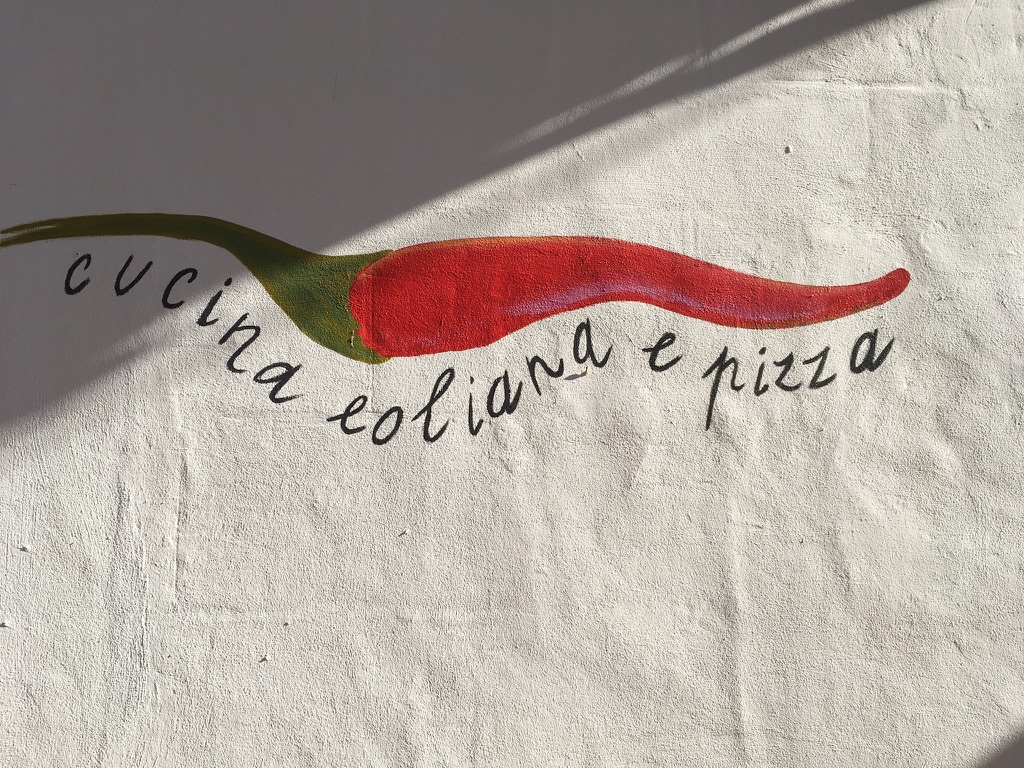 cucina eoliana e pizza